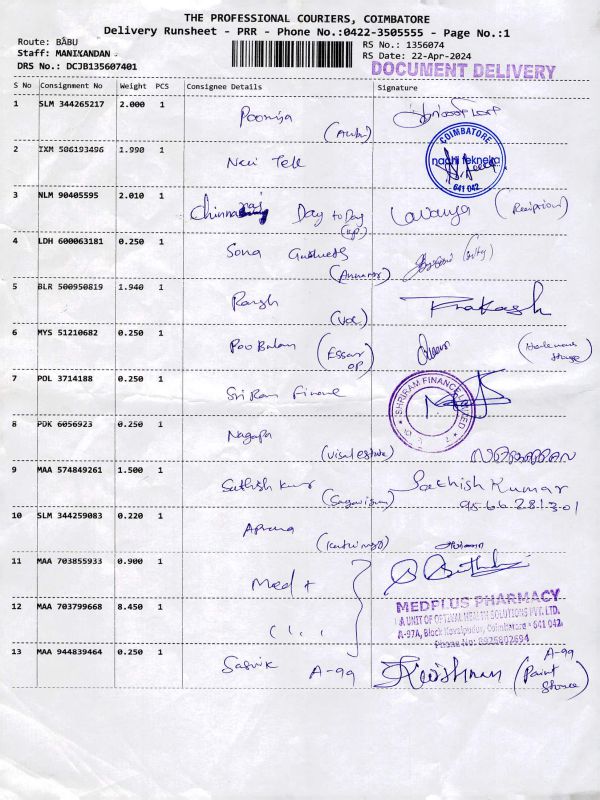 THE PROFESSIONAL COURIERS, COIMBATORE
Delivery Runsheet - PRR - Phone No.:0422-3505555 - Page No.:1
Route: BABU
Staff: MANIKANDAN
DRS No.: DCJB135607401
RS No.: 1356074
RS Date: 22-Apr-2024
DOCUMENT DELIVERY
S No Consignment No Weight PCS Consignee Details Signature
1 SLM 344265217 2.000 1 Poornija
2 IXM 506193496 1.990 1 Navi Tek
COIMBATORE
nachi tekneka
641 042
3 NLM 90405595 2.010 1 Chinnaraj Day to Day Lavanya
4 LDH 600063181 0.250 1 Sona
5 BLR 500950819 1.940 1 Prakash
6 MYS 51210682 0.250 1 Poo Balan (Essar
7 POL 3714188 0.250 1 Sri Ram Finance
SHRIRAM FINANCE LIMITED
8 PDK 6056923 0.250 1 Nagapa
(Visal estate)
9 MAA 574849261 1.500 1 Sathish Kumar Sathish Kumar
95 66 281301
10 SLM 344259083 0.220 1
11 MAA 703855933 0.900 1 Med +
12 MAA 703799668 8.450 1
MEDPLUS PHARMACY
A UNIT OF OPTIVAL HEALTH SOLUTIONS PVT. LTD.
A-97A, Block Kovaipudur, Coimbatore - 641 042.
13 MAA 944839464 0.250 1 Sasvik A-99 Krishnan A-99
(Paint
Store)